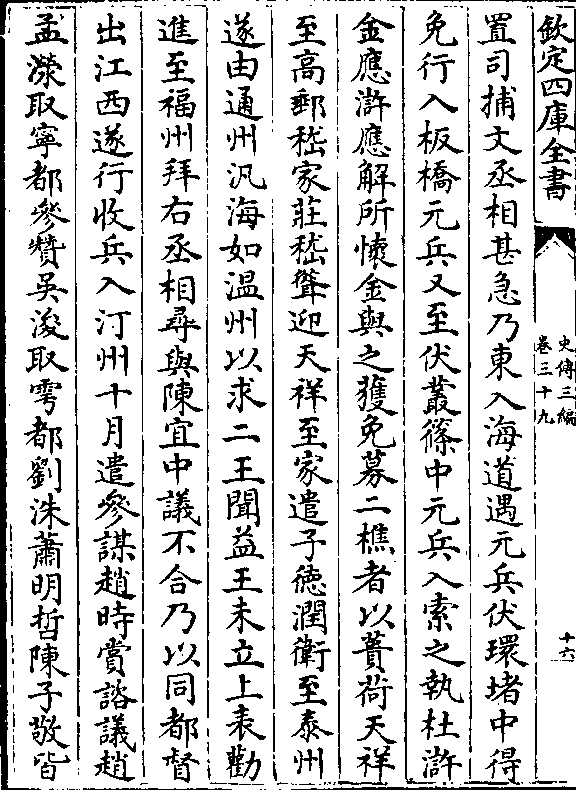 欽定四庫全書
史傳三編
卷三十九
十六
置司捕文丞相甚急乃東入海道遇元兵伏環堵中得
免行入板橋元兵又至伏叢篠中元兵入索之執杜滸
金應滸應解所懷金與之獲免募二樵者以蕢荷天祥
至高郵嵇家莊嵇聳迎天祥至家遣子徳潤衛至泰州
遂由通州汎海如温州以求二王聞益王未立上表勸
進至福州拜右丞相尋與陳宜中議不合乃以同都督
出江西遂行收兵入汀州十月遣參謀趙時賞諮議趙
孟濚取寧都參贊吳浚取雩都劉洙蕭明哲陳子敬皆